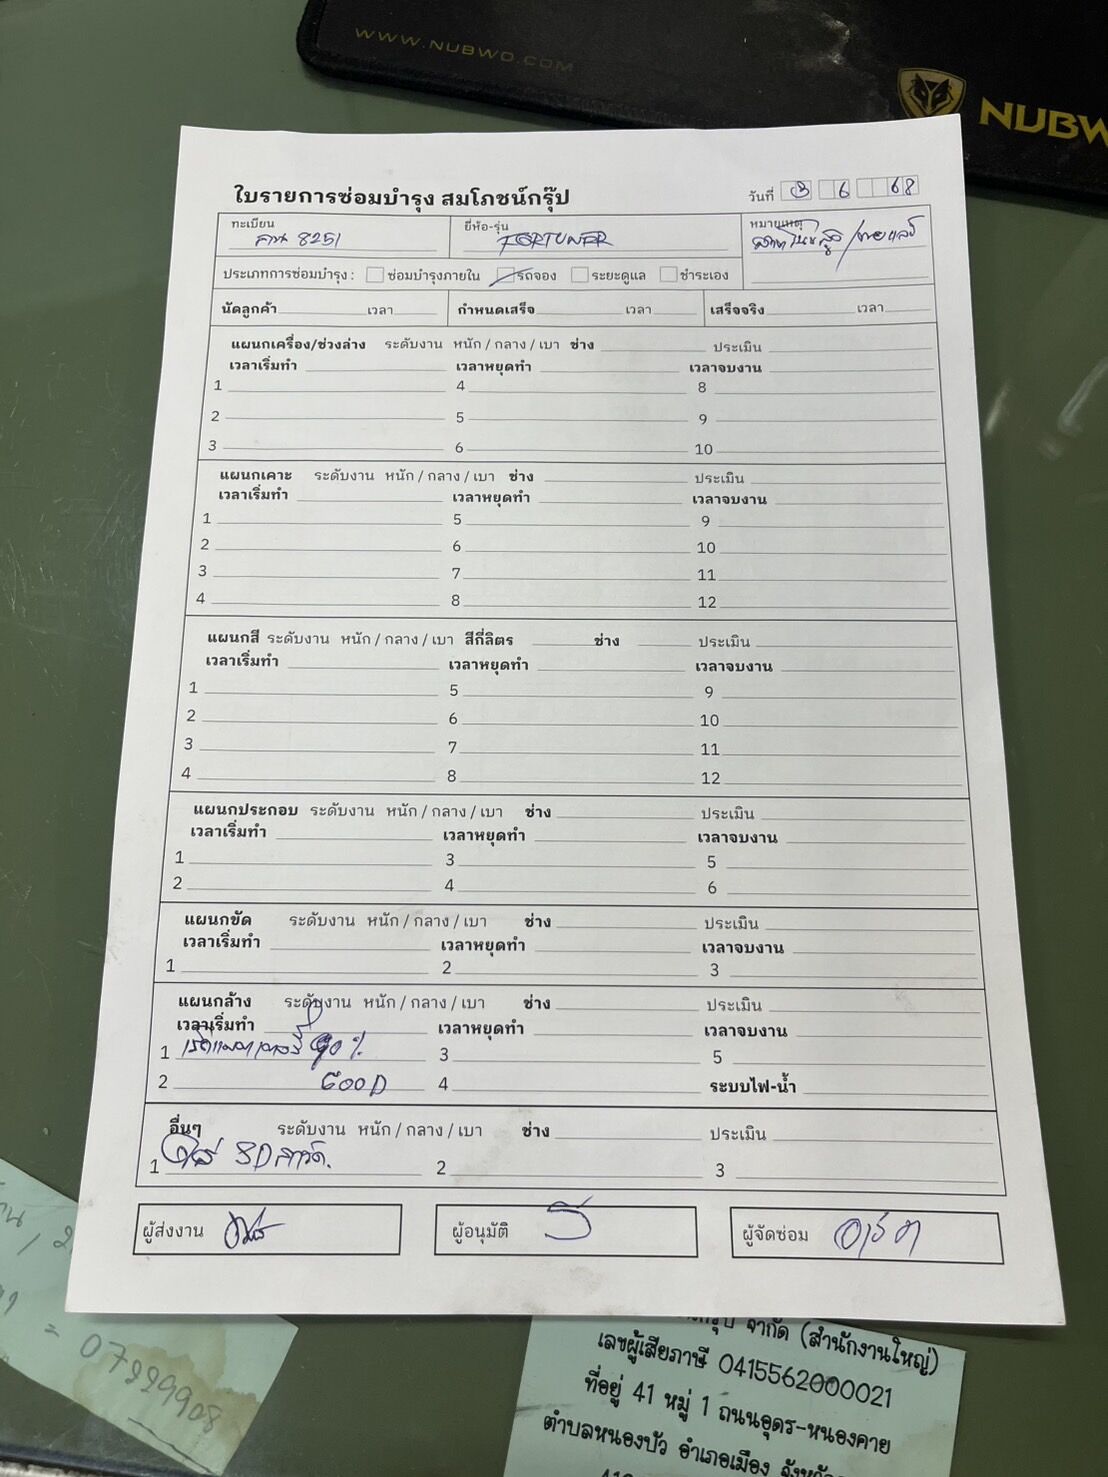 WWW.NUBWO.COM
NUBW
ใบรายการซ่อมบำรุง สมโภชน์กรุ๊ป
วันที่ 3 6 68
ทะเบียน 8251 ยี่ห้อ-รุ่น FORTUNER หมายเหตุ
ประเภทการซ่อมบำรุง : ซ่อมบำรุงภายใน รถจอง ระยะดูแล ชำระเอง
นัดลูกค้า เวลา กำหนดเสร็จ เวลา เสร็จจริง เวลา
แผนกเครื่อง/ช่วงล่าง ระดับงาน หนัก / กลาง / เบา ช่าง ประเมิน
เวลาเริ่มทำ เวลาหยุดทำ เวลาจบงาน
1 4 8
2 5 9
3 6 10
แผนกเคาะ ระดับงาน หนัก / กลาง / เบา ช่าง ประเมิน
เวลาเริ่มทำ เวลาหยุดทำ เวลาจบงาน
1 5 9
2 6 10
3 7 11
4 8 12
แผนกสี ระดับงาน หนัก / กลาง / เบา สีกี่ลิตร ช่าง ประเมิน
เวลาเริ่มทำ เวลาหยุดทำ เวลาจบงาน
1 5 9
2 6 10
3 7 11
4 8 12
แผนกประกอบ ระดับงาน หนัก / กลาง / เบา ช่าง ประเมิน
เวลาเริ่มทำ เวลาหยุดทำ เวลาจบงาน
1 3 5
2 4 6
แผนกขัด ระดับงาน หนัก / กลาง / เบา ช่าง ประเมิน
เวลาเริ่มทำ เวลาหยุดทำ เวลาจบงาน
1 2 3
แผนกล้าง ระดับงาน หนัก / กลาง / เบา ช่าง ประเมิน
เวลาเริ่มทำ เวลาหยุดทำ เวลาจบงาน
1 90 % 3 5
2 GOOD 4 ระบบไฟ-น้ำ
อื่นๆ ระดับงาน หนัก / กลาง / เบา ช่าง ประเมิน
1 ใส่ SD การ์ด. 2 3
ผู้ส่งงาน ผู้อนุมัติ ผู้จัดซ่อม
= 07229908
จำกัด (สำนักงานใหญ่)
เลขผู้เสียภาษี 0415562000021
ที่อยู่ 41 หมู่ 1 ถนนอุดร-หนองคาย
ตำบลหนองบัว อำเภอเมือง